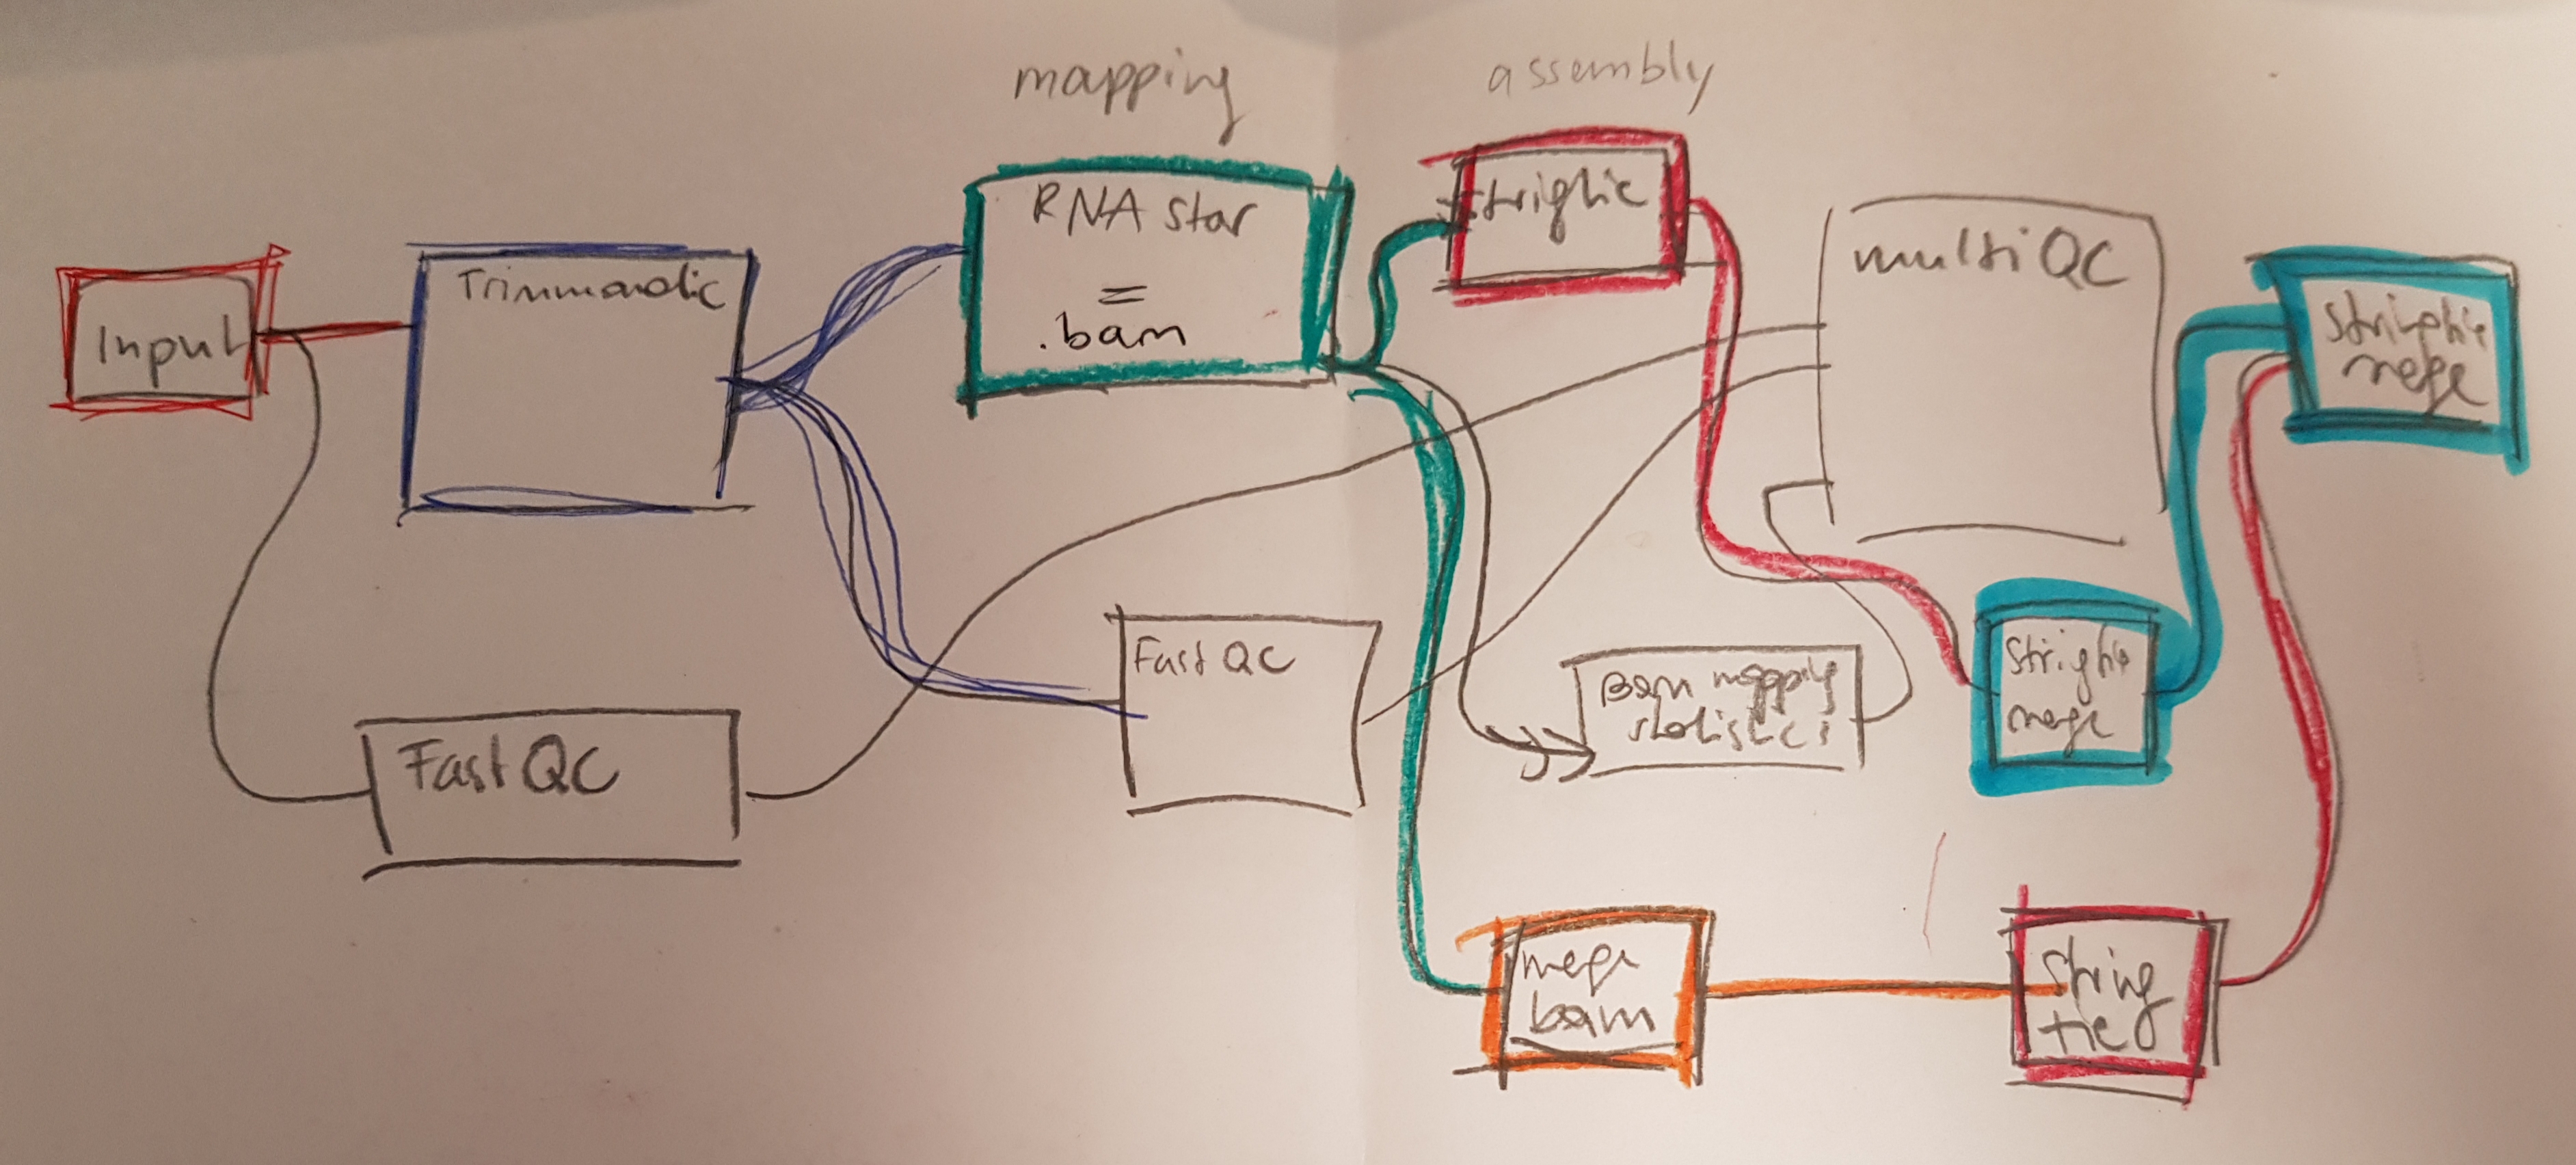 mapping
assembly
Input
Trimmomatic
RNA star
=
.bam
stringtie
multiQC
Stringtie
merge
Fast QC
Fast QC
Bam mapping
statistics
Stringtie
merge
merge
bam
String
tie